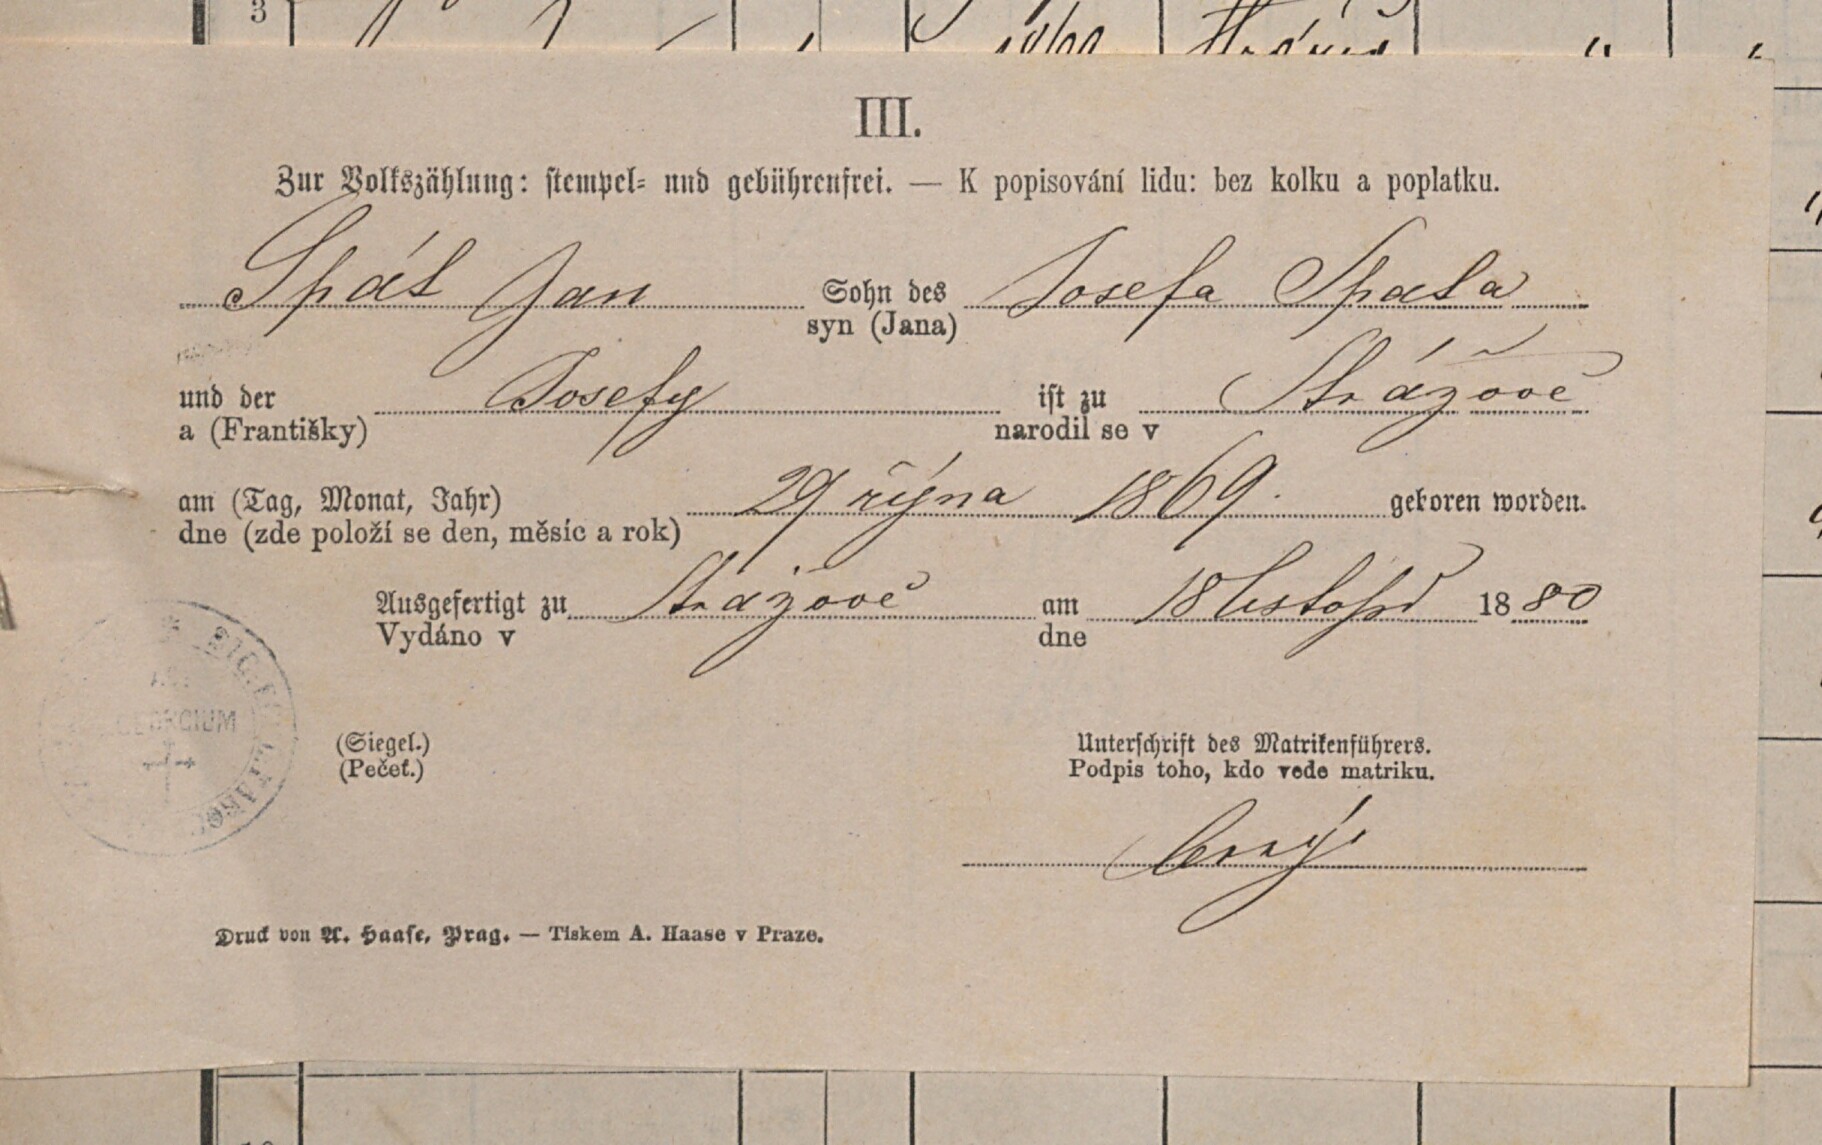 3
III.
Zur Volkszählung: stempel- und gebührenfrei. — K popisování lidu: bez kolku a poplatku.
Spát Jan Sohn des Josefa Spata
syn (Jana)
und der Josefy ist zu Strážově
a (Františky) narodil se v
am (Tag, Monat, Jahr) 29 října 1869. geboren worden.
dne (zde položí se den, měsíc a rok)
Ausgefertigt zu Strážově am 18 listopd 1880
Vydáno v dne
(Siegel.) Unterschrift des Matrikenführers.
(Pečeť.) Podpis toho, kdo vede matriku.
Černý
Druck von A. Haase, Prag. — Tiskem A. Haase v Praze.